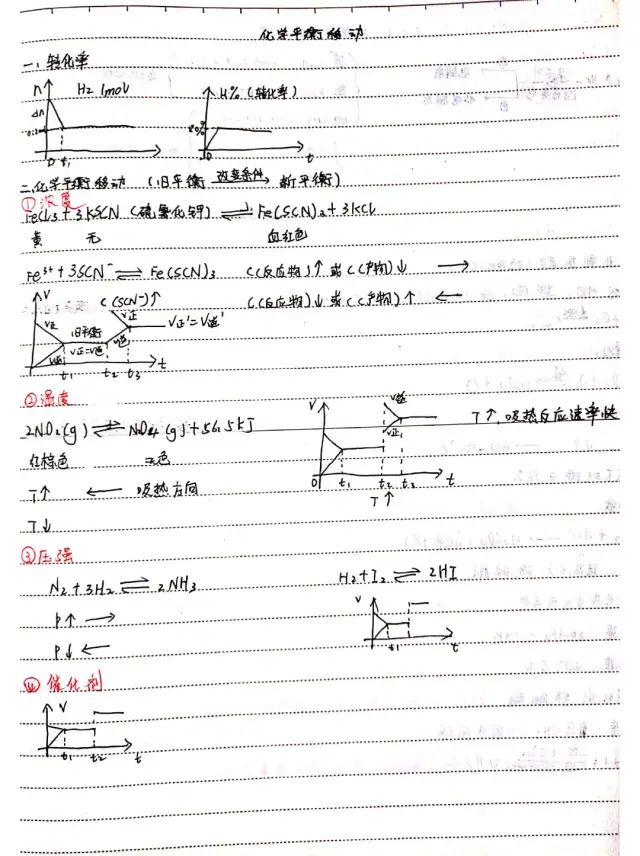 化学平衡移动
一、转化率
n H2 1mol H%(转化率)
Δn
0 t1 t 0 t
二、化学平衡移动 (旧平衡 改变条件→ 新平衡)
①浓度
FeCl3+3KSCN (硫氰化钾) ⇌ Fe(SCN)2+3KCl
黄 无 血红色
Fe³⁺+3SCN⁻ ⇌ Fe(SCN)3 C(反应物)↑ 或 C(产物)↓ →
V C(SCN⁻)↑ C(反应物)↓ 或 C(产物)↑ ←
V正 旧平衡 V正 V正'=V逆'
V逆 V正=V逆 V逆
t1 t2 t3 t
②温度
2NO2(g) ⇌ N2O4(g)+56.5kJ
红棕色 无色
V V逆 V正 T↑,吸热反应速率快
0 t1 t2 t3 t
T↑
T↑ ← 吸热方向
T↓
③压强
N2+3H2 ⇌ 2NH3 H2+I2 ⇌ 2HI
P↑ → V
P↓ ← t1 t
④ 催化剂
V
t1 t2 t